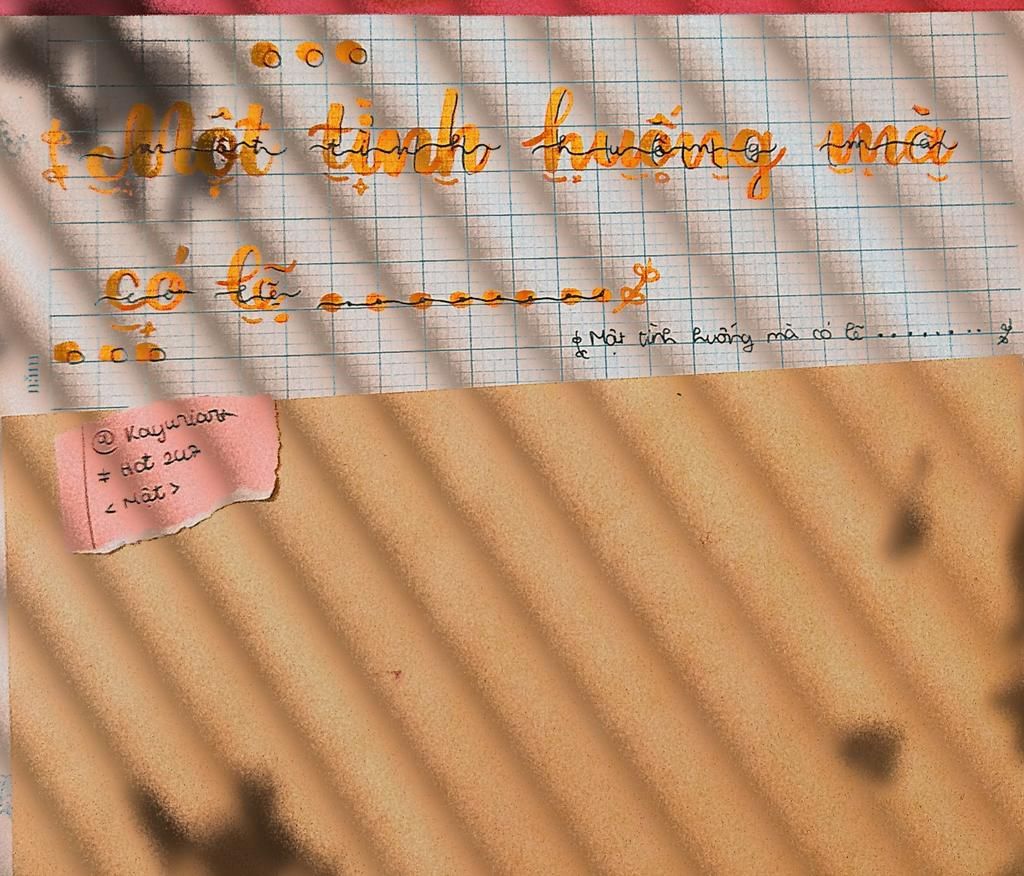 Một tình huống mà
có lẽ
Một tình huống mà có lẽ ........
@ Kayuriar
# Hot 247
< Mật >